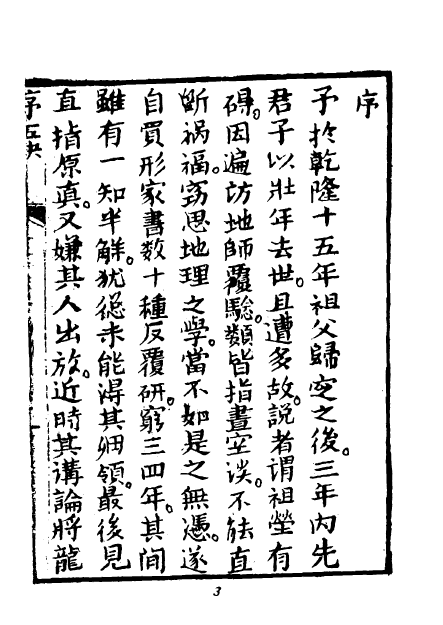 序
予於乾隆十五年祖父歸窆之後。三年內先
君子以壯年去世。且遭多故。説者谓祖塋有
碍。因遍访地師覆騐。類皆指畫空谈。不能直
断祸福。窃思地理之學。當不如是之無憑。遂
自買形家書数十種反覆研窮三四年。其间
雖有一知半解。犹總未能得其纲領。最後見
直指原真。又嫌其人出放。近時其溝論將龍
序五决
3